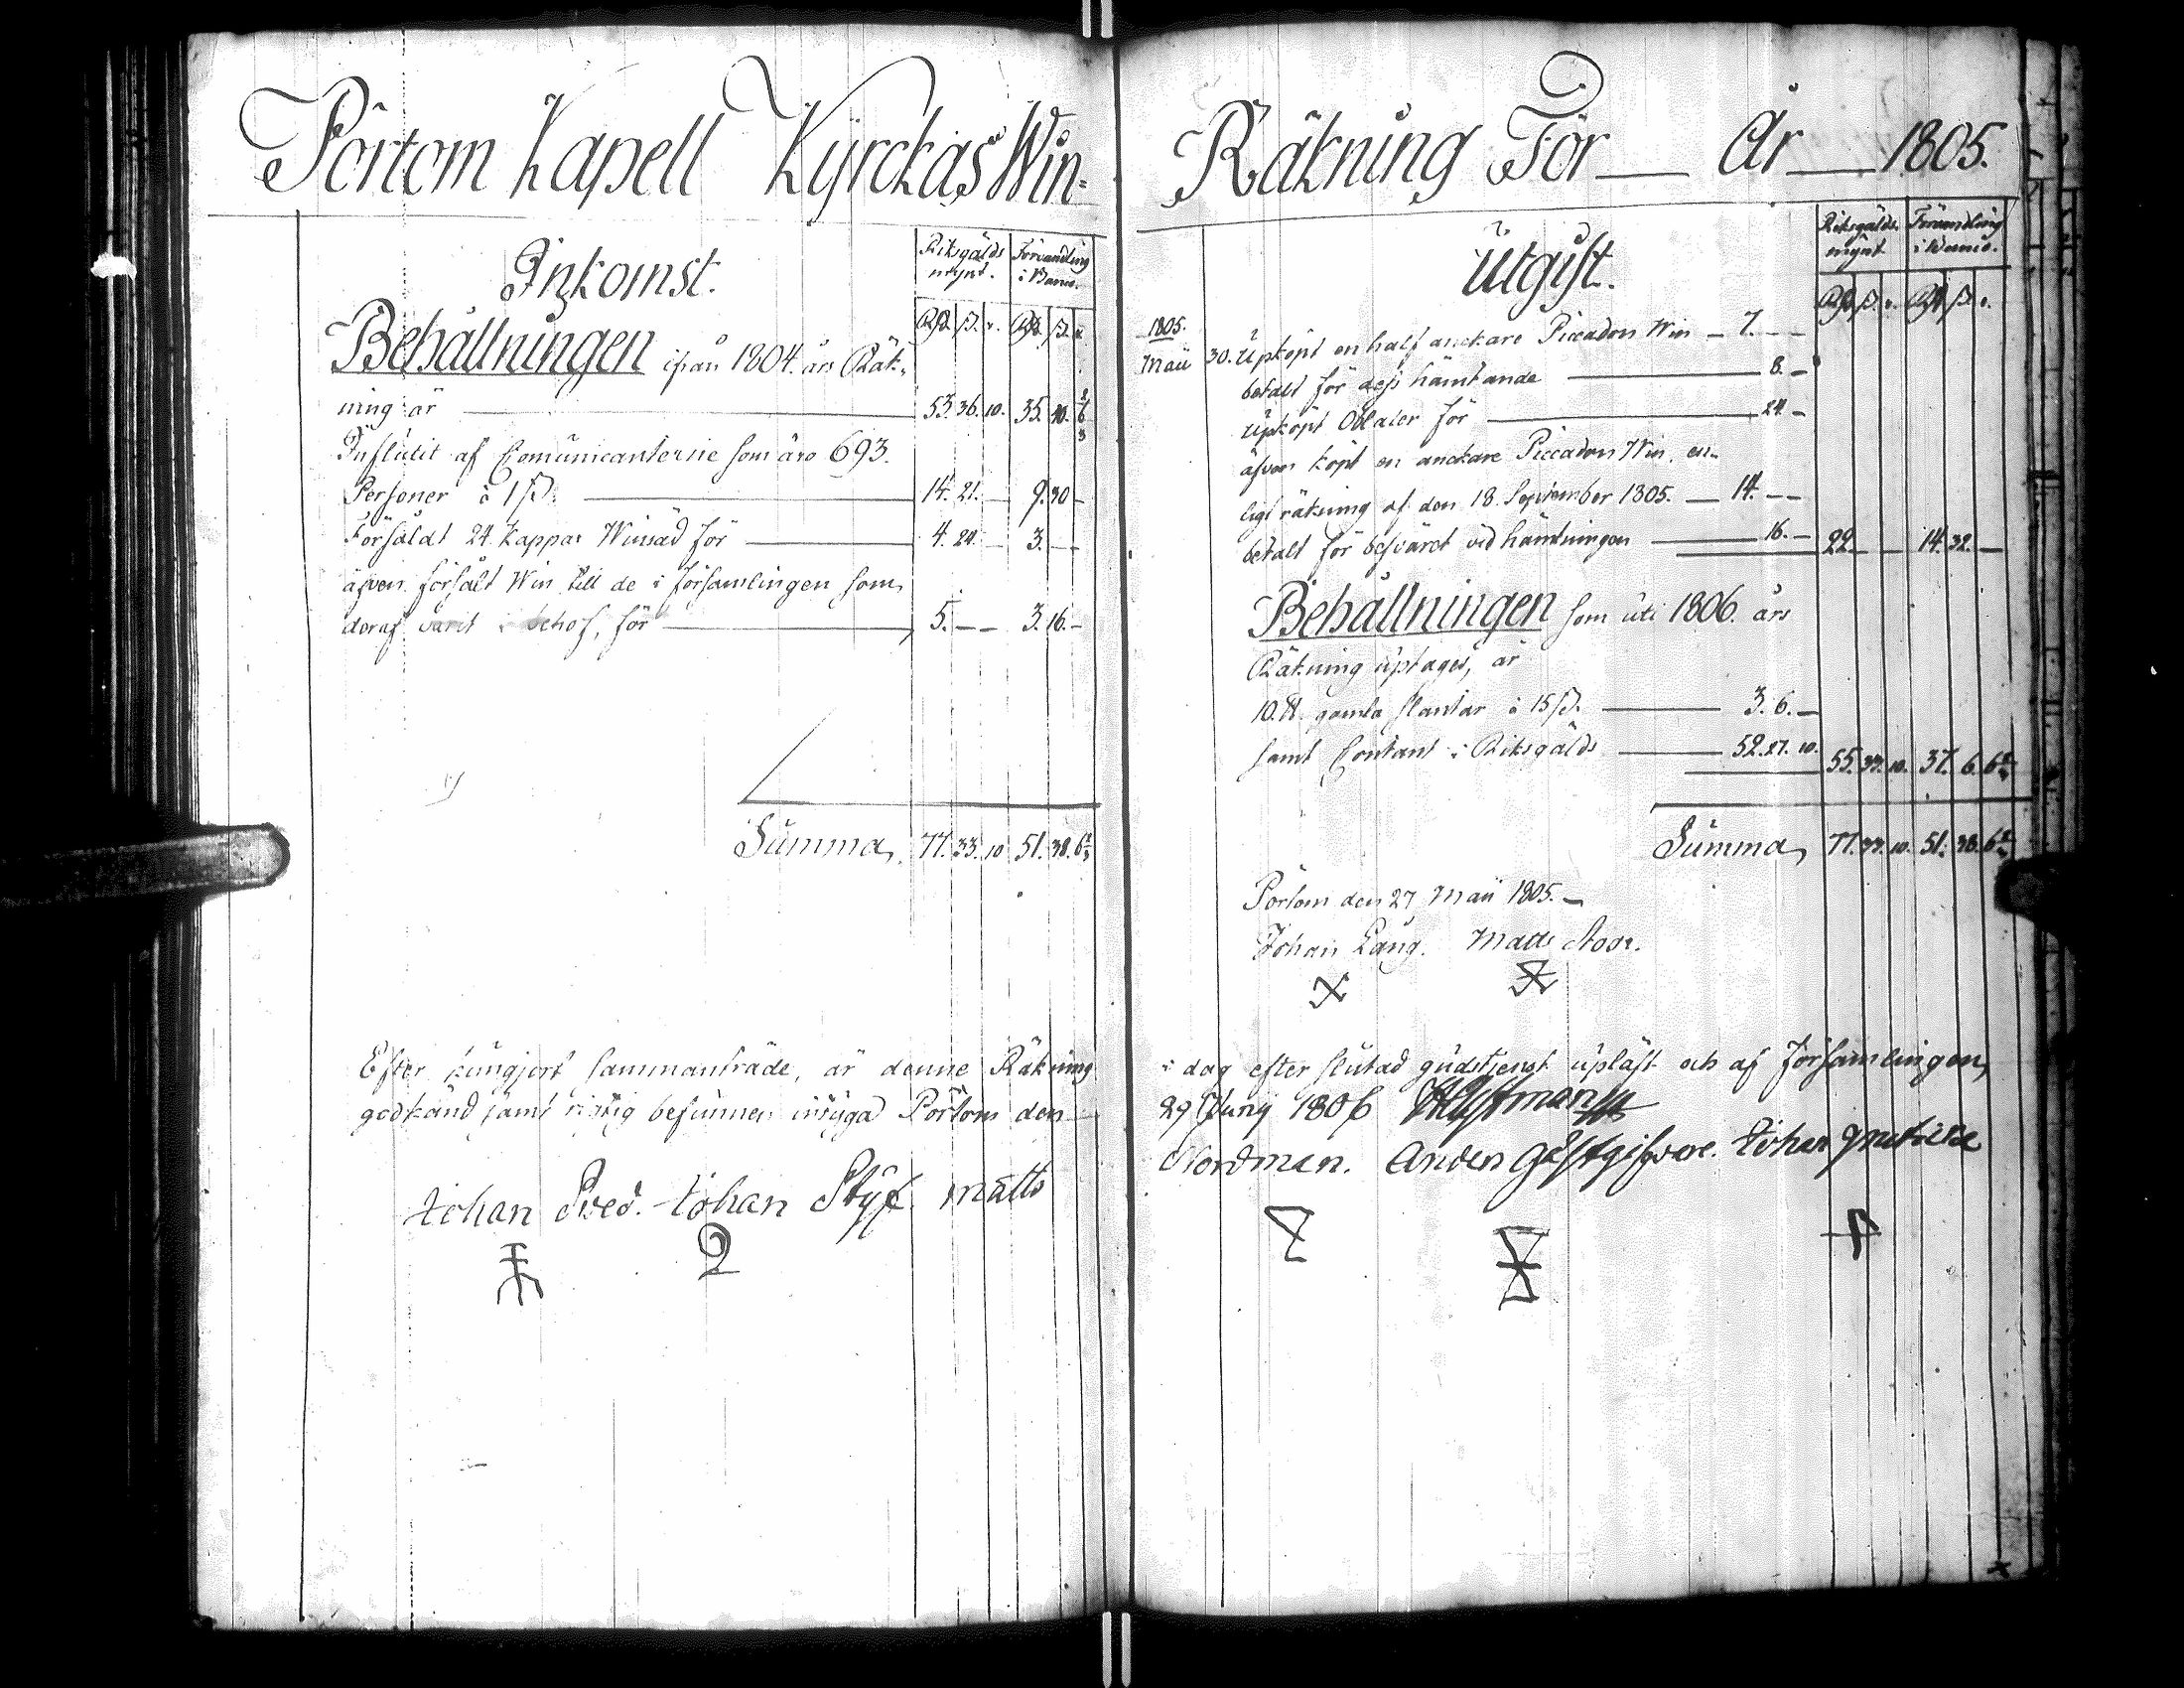 Pörtom Kapell Kyrckas Win-
Inkomst.
Riksgälds mynt. Förvandling i Banco.
Rd. ß. r. Rd. ß. r.
Behållningen ifrån 1804. års Räk-
ning är — 53. 36. 10. 35. 40. 6 2/3
Influtit af Comunicanterne som äro 693.
Personer à 1 ß. — 14. 21. — 9. 30 —
Försåldt 24. kappar Winsäd för — 4. 24. — 3. — —
äfven försålt Win till de i församlingen som
deraf varit i behof, för — 5. — — 3. 16. —
Summa, 77. 33. 10 51. 38. 6 2/3
Efter kungjort sammanträde, är denne Räkning
godkänd samt riktig befunnen intygad Pörtom den
Johan Sved. Johan Styf. Matts
Räkning För — År — 1805.
Utgift.
Riksgälds mynt Förvandling i Banco.
Rd. ß. r. Rd. ß. r.
1805.
Maii 30. Upköpt en half anckare Piccadon Win — 7. — —
betalt för dess hämtande — 8. —
Upköpt Oblater för — 24 —
äfven köpt en anckare Piccadon Win, en-
ligt räkning af den 18. September 1805. — 14. — —
betalt för besväret vid hämtningen — 16. — 22. — — 14. 32. —
Behållningen som uti 1806. års
Räkning uptages, är
10. ℔ gamla slantar à 15 ß. — 3. 6. —
samt Contant i Riksgälds — 52. 27. 10. 55. 33. 10. 37. 6. 6 2/3
Summa, 77. 33. 10. 51. 38. 6 2/3
Pörtom den 27 Maii 1805. —
Johan Lång. Matts
i dag efter slutad gudstjenst upläst och af Församlingen,
29 Junij 1806
Nordman. Anders Gästgifvare. Johan